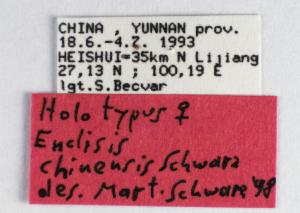 CHINA , YUNNAN prov.
18.6.-4.7. 1993
HEISHUI=35km N Lijiang
27,13 N ; 100,19 E
lgt.S.Becvar
Holotypus ♀
Enclisis
chinensis Schwarz
des. Mart. Schwarz '98